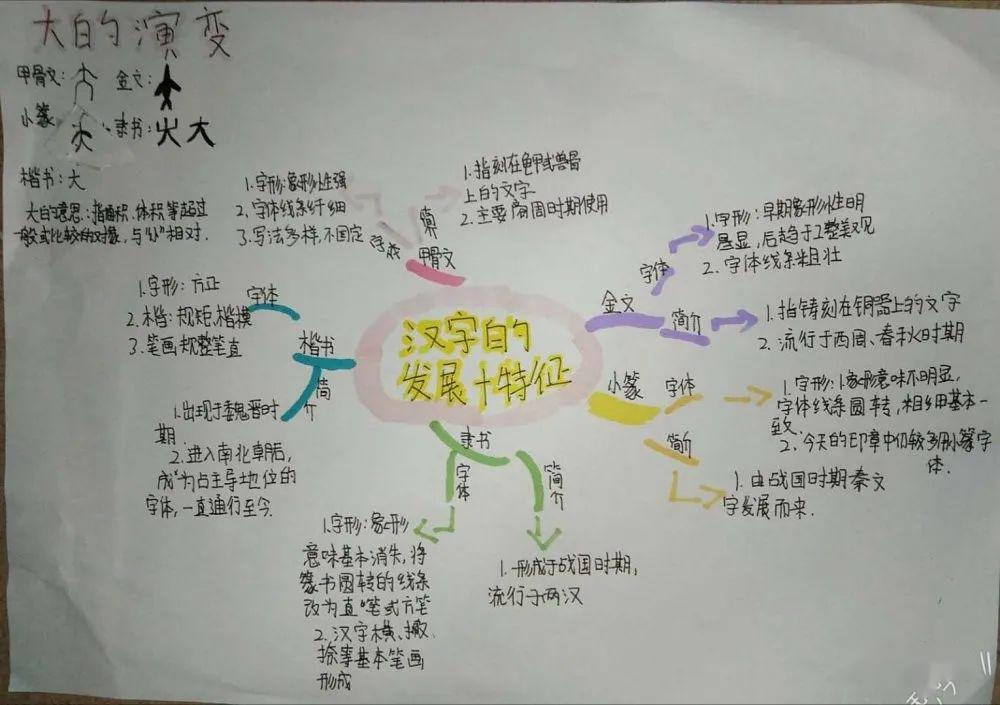 大的演变
甲骨文：
金文：
小篆
隶书：大
楷书：大
大的意思：指面积、体积等超过
一般或比较的对象，与“小”相对．
汉字的
发展＋特征
甲骨文
字形
1.字形：象形性强
2.字体线条纤细
3.写法多样，不固定
简介
1.指刻在龟甲或兽骨
上的文字
2.主要商周时期使用
金文
字体
1.字形：早期象形性明
显，后趋于工整美观
2.字体线条粗壮
简介
1.指铸刻在铜器上的文字
2.流行于西周、春秋时期
小篆
字体
1.字形：象形意味不明显，
字体线条圆转，粗细基本一
致．
2.今天的印章中仍较多用小篆字
体．
简介
1.由战国时期秦文
字发展而来．
隶书
字体
1.字形：象形
意味基本消失，将
篆书圆转的线条
改为直笔或方笔
2.汉字横、撇、
捺等基本笔画
形成
简介
1.形成于战国时期，
流行于两汉
楷书
字体
1.字形：方正
2.楷：规矩，楷模
3.笔画规整笔直
简介
1.出现于魏晋时
期．
2.进入南北朝后，
成为占主导地位的
字体，一直通行至今．